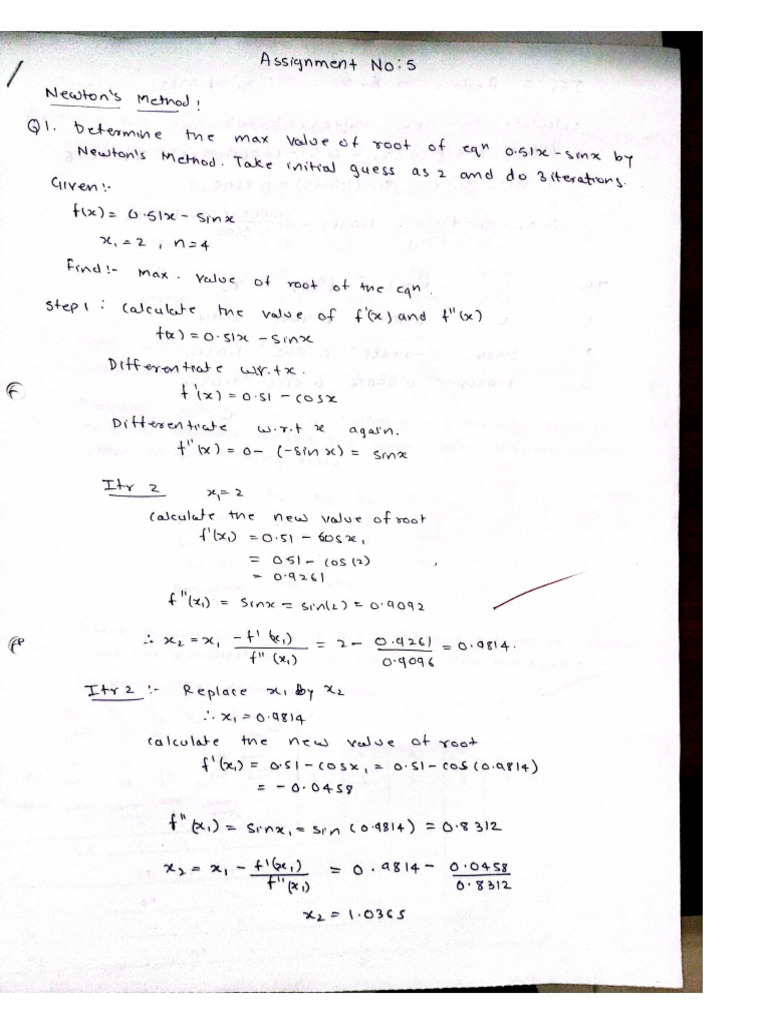 Assignment No:5
Newton's Method:
Q1. Determine the max value of root of eqn 0.51x - sinx by
Newton's Method. Take initial guess as 2 and do 3 iterations.
Given:-
f(x) = 0.51x - sinx
x₁ = 2 , n=4
Find:- max. value of root of the eqn.
Step 1 : Calculate the value of f'(x) and f"(x)
f(x) = 0.51x - sinx
Differentiate w.r.t x.
f'(x) = 0.51 - cosx
Differentiate w.r.t x again.
f"(x) = 0 - (-sin x) = sinx
Itr 2 x₁ = 2
Calculate the new value of root
f'(x₁) = 0.51 - cosx₁
= 0.51 - cos(2)
= 0.9261
f"(x₁) = sinx = sin(2) = 0.9092
∴ x₂ = x₁ - f'(x₁) / f"(x₁) = 2 - 0.9261 / 0.9096 = 0.9814.
Itr 2 :- Replace x₁ by x₂
∴ x₁ = 0.9814
Calculate the new value of root
f'(x₁) = 0.51 - cosx₁ = 0.51 - cos(0.9814)
= -0.0458
f"(x₁) = sinx₁ = sin(0.9814) = 0.8312
x₂ = x₁ - f'(x₁) / f"(x₁) = 0.9814 - 0.0458 / 0.8312
x₂ = 1.0365